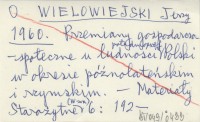 O WIELOWIEJSKI Jerzy
1960. Przemiany gospodarczo
-społeczne u ludności Polski
południowej
w okresie późnolateńskim
i rzymskim. — Materiały
Starożytne 6: 192—